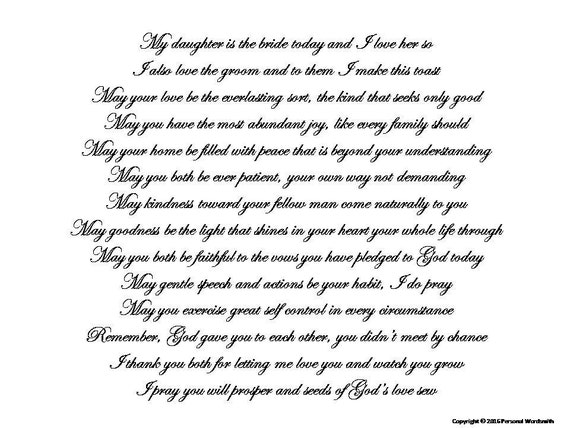 My daughter is the bride today and I love her so
I also love the groom and to them I make this toast
May your love be the everlasting sort, the kind that seeks only good
May you have the most abundant joy, like every family should
May your home be filled with peace that is beyond your understanding
May you both be ever patient, your own way not demanding
May kindness toward your fellow man come naturally to you
May goodness be the light that shines in your heart your whole life through
May you both be faithful to the vows you have pledged to God today
May gentle speech and actions be your habit, I do pray
May you exercise great self control in every circumstance
Remember, God gave you to each other, you didn't meet by chance
I thank you both for letting me love you and watch you grow
I pray you will prosper and seeds of God's love sew
Copyright © 2016 Personal Wordsmith